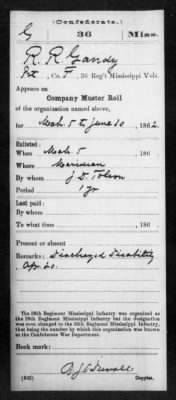 (Confederate.)
G 36 Miss.
R. R. Gandy
Pvt, Co. F, 36 Reg't Mississippi Vols.
Appears on
Company Muster Roll
of the organization named above,
for Mch. 5 to June 30, 1862.
Enlisted:
When Mch. 5, 186
Where Meridian
By whom J. D. Tolson
Period 1 yr
Last paid:
By whom
To what time , 186 .
Present or absent
Remarks: Discharged Disability,
Apr. 20.
The 36th Regiment Mississippi Infantry was organized as
the 38th Regiment Mississippi Infantry but the designation
was soon changed to the 36th Regiment Mississippi Infantry,
that being the number by which this organization was known at
the Confederate War Department.
Book mark:
(642) Copyist.